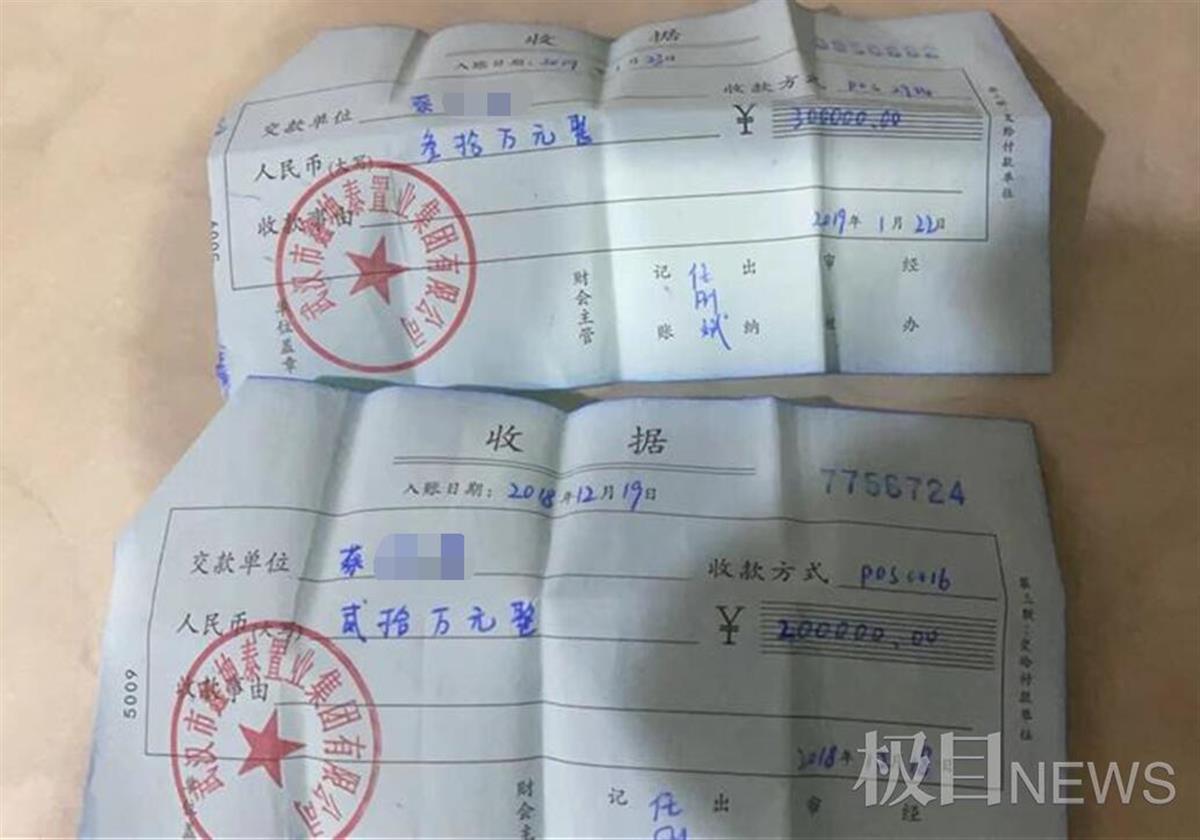 收 据
入账日期：2019 1月23日
收款方式 pos
交款单位 蔡
人民币(大写) 叁拾万元整 ￥ 300000.00
收款事由
2019年 1月22日
武汉市鑫纳泰置业集团有限公司
单位盖章
财会主管 记账 任刚斌 出纳 审核 经办
5009
收 据
入账日期：2018年12月19日 7756724
交款单位 蔡 收款方式 pos
人民币(大写) 贰拾万元整 ￥ 200000.00
收款事由
2018年
第二联：交给付款单位
5009
武汉市鑫纳泰置业集团有限公司
财会主 记 任刚 出 审 经
极目NEWS